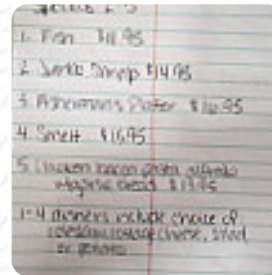 1. Fish $11.95
2. Jumbo Shrimp $14.95
3. Fisherman's Platter $16.95
4. Smelt $16.95
5. Chicken bacon pasta alfredo
bread $13.95
1-4 dinners include choice of
coleslaw, cottage cheese, salad,
or potato